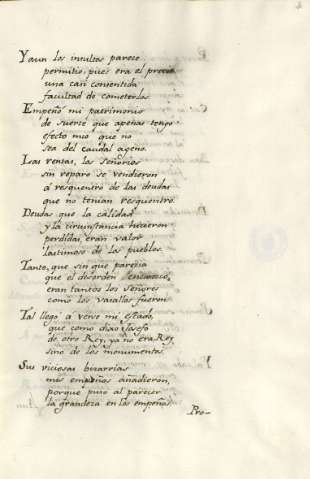 Y aun los insultos parece
permitio, pues era el precio
una casi consentida
facultad de cometerlos.
Empeño mi patrimonio
de suerte que apenas tengo
efecto mio que no
sea del caudal ageno.
Las rentas, las Señorios
sin reparo se vendieron
á resquentro de las deudas
que no tenian resquentro.
Deudas que la calidad
y la circunstancia hicieron
perdidas, eran valor
lastimoso de los pueblos.
Tanto, que sin que parezia
que el desorden
eran tantos los Señores
como los vasallos fueron.
Tal llegó a verse mi estado,
que como dixo
de otro Rey, ya no era Rey
sino de los monumentos.
Sus viciosas bizarrias
mis empeños añadieron,
porque puso al parecer
la grandeza en los empeños.
Pro-